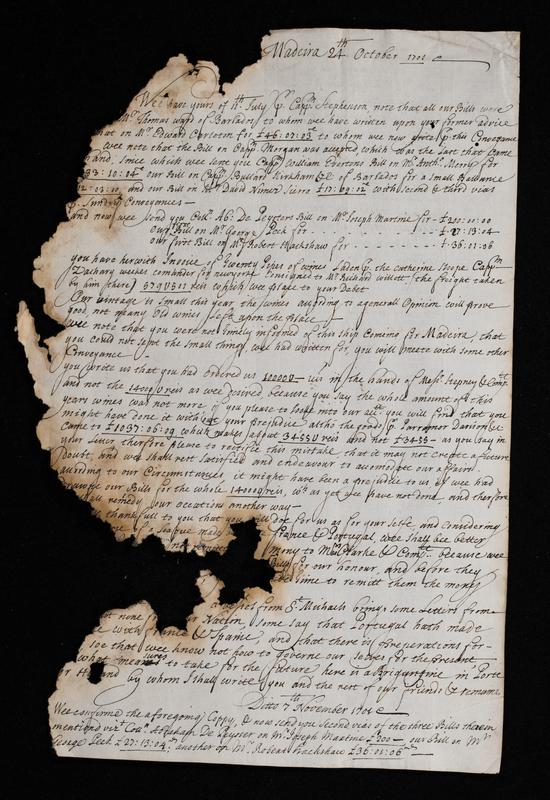 Madeira 24th October 1701
Wee have yours of 11th July p. Capt Stephenson, note that all our Bills were
Mr Thomas ward of Barbados to whom wee have written upon your former advice
hat on Mr Edward Carleton for £46:07:03d to whom wee now write p this Conveyance
wee note that the Bill on Capt Morgan was accepted, which was the last that Came
and, since which wee send you Capt William Esertons Bill on Mr Anth. Merry for
33:10:04 our Bill on Capt Bullard Kirkham &c of Barbados for a small Ballance
12:03:10 and our Bill on Mr David Nimer Sierra £17:09:02 with second & third vias
p. sundry Conveyances
and now wee send you Coll. Ab: De Peysters Bill on Mr Joseph Martine for - £200:00:00
our Bill on Mr George Peck for - £:27:13:04
our first Bill on Mr Robert Hackshaw for - £:36:01:06
you have herewith Invoice of Twenty Pipes of wines Laden p. the Catherine sloope Capt
Zachary weekes comander for newyorke Consigned to Mr Richard willett (the freight taken
by him there) 579U501 reis which wee place to your Debt
Our vintage is small this year, the wines according to a generall Opinion will prove
good, not many Old wines left upon the place
wee note that you were not timely informed of this ship coming for Madeira, that
you could not sent the small things wee had written for, you will meete with some other
Conveyance
you wrote us that you had ordered us 1000U reis in the hands of Messrs Stepney & Compt
and not the 1400U reis as wee desired, because you say the whole amount of this
years wines was not more, if you please to looke into our acct you will find that you
might have done it without your prejudice, altho the goods p. Parramor Darion &c
came to £1037:06:09 which makes about 3455U reis and not £3455 - as you say in
your letter therfore please to rectifie this mistake, that it may not create a future
doubt, and wee shall rest satisfied and endeavour to accomodate our affairs
according to our Circumstances, it might have been a prejudice to us if wee had
drawne our Bills for the whole 1400U reis, wch as yet wee have not done and therfore
all remedy our occation another way
thankfull to you that you will doe for us as for your selfe, and considering
france & Portugal, wee shall bee better
mony to Messrs Clarke & Compt. because wee
Bills for our honour, and before they
time to remitt them the mony
from St Michaels brings some letters from
t none for our Nation, some say that Portugal hath made
e with france & Spaine, and that there is preperations for
soe that wee know not how to governe our selves for the present
what measures to take for the future here is a Briganteine in Porte
for Holland by whom I shall write you and the rest of our friends & remaine
Ditto 7th November 1701
Wee confirme the aforegoing Coppy, & now send you second vias of the three Bills therein
mentioned vizt Coll. Abraham De Peyster on Mr Joseph Martine £200 - our Bill on Mr
George Peck £27:13:04; another on Mr Robert Hackshaw £36:01:06